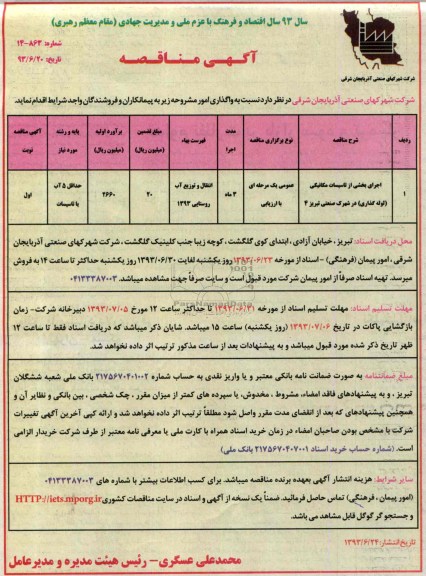 سال ۹۳ سال اقتصاد و فرهنگ با عزم ملی و مدیریت جهادی (مقام معظم رهبری)
شماره: ۸۶۳-۱۴
تاریخ: ۹۳/۶/۲۰
آگهی مناقصه
شرکت شهرکهای صنعتی آذربایجان شرقی
شرکت شهرکهای صنعتی آذربایجان شرقی در نظر دارد نسبت به واگذاری امور مشروحه زیر به پیمانکاران و فروشندگان واجد شرایط اقدام نماید.
ردیف | شرح مناقصه | نوع برگزاری مناقصه | مدت اجرا | فهرست بهاء | مبلغ تضمین (میلیون ریال) | برآورد اولیه (میلیون ریال) | پایه و رشته مورد نیاز | آگهی مناقصه نوبت
۱ | اجرای بخشی از تاسیسات مکانیکی (لوله گذاری) در شهرک صنعتی تبریز ۴ | عمومی یک مرحله ای با ارزیابی | ۳ ماه | انتقال و توزیع آب روستایی ۱۳۹۳ | ۲۰ | ۲۶۶۰ | حداقل ۵ آب یا تاسیسات | اول
محل دریافت اسناد: تبریز، خیابان آزادی، ابتدای کوی گلگشت، کوچه زیبا جنب کلینیک گلگشت، شرکت شهرکهای صنعتی آذربایجان
شرقی، امور پیمان (فرهنگی) – اسناد از مورخه ۱۳۹۳/۰۶/۲۳ روز یکشنبه لغایت ۱۳۹۳/۰۶/۳۰ روز یکشنبه حداکثر تا ساعت ۱۴ به فروش
میرسد. تهیه اسناد صرفاً از امور پیمان شرکت مورد قبول است و سایت صرفاً جهت مشاهده میباشد. ۰۴۱۳۳۳۸۷۰۰۳
مهلت تسلیم اسناد: مهلت تسلیم اسناد از مورخه ۱۳۹۳/۰۶/۳۱ تا حداکثر ساعت ۱۲ مورخ ۱۳۹۳/۰۷/۰۵ دبیرخانه شرکت – زمان
بازگشایی پاکات در تاریخ ۱۳۹۳/۰۷/۰۶ (روز یکشنبه) ساعت ۱۵ میباشد. شایان ذکر میباشد که دریافت اسناد فقط تا ساعت ۱۲
ظهر تاریخ ذکر شده مورد قبول میباشد و به پیشنهادات بعد از ساعت مذکور ترتیب اثر داده نخواهد شد.
مبلغ ضمانتنامه به صورت ضمانت نامه بانکی معتبر و یا واریز نقدی به حساب شماره ۲۱۷۵۶۷۰۴۰۱۰۰۲ بانک ملی شعبه ششگلان
تبریز، و به پیشنهادهای فاقد امضاء، مشروط، مخدوش، یا سپرده های کمتر از میزان مقرر، چک شخصی، بین بانکی و نظایر آن و
همچنین پیشنهادهای که بعد از انقضای مدت مقرر واصل شود مطلقاً ترتیب اثر داده نخواهد شد و ارائه کپی آخرین آگهی تغییرات
شرکت با مشخص بودن صاحبان امضاء در زمان خرید اسناد همراه با کارت ملی یا معرفی نامه معتبر از طرف شرکت خریدار الزامی
است. (شماره حساب خرید اسناد ۲۱۷۵۶۷۰۴۰۷۰۰۱ بانک ملی)
سایر شرایط: هزینه انتشار آگهی بعهده برنده مناقصه میباشد. برای کسب اطلاعات بیشتر با شماره های ۰۴۱۳۳۳۸۷۰۰۳
(امور پیمان، فرهنگی) تماس حاصل فرمائید. ضمناً یک نسخه از آگهی و اسناد در سایت مناقصات کشوری HTTP://iets.mporg.ir
و جستجو گر گوگل قابل مشاهده می باشد.
تاریخ انتشار: ۱۳۹۳/۶/۲۴
محمدعلی عسگری – رئیس هیئت مدیره و مدیرعامل